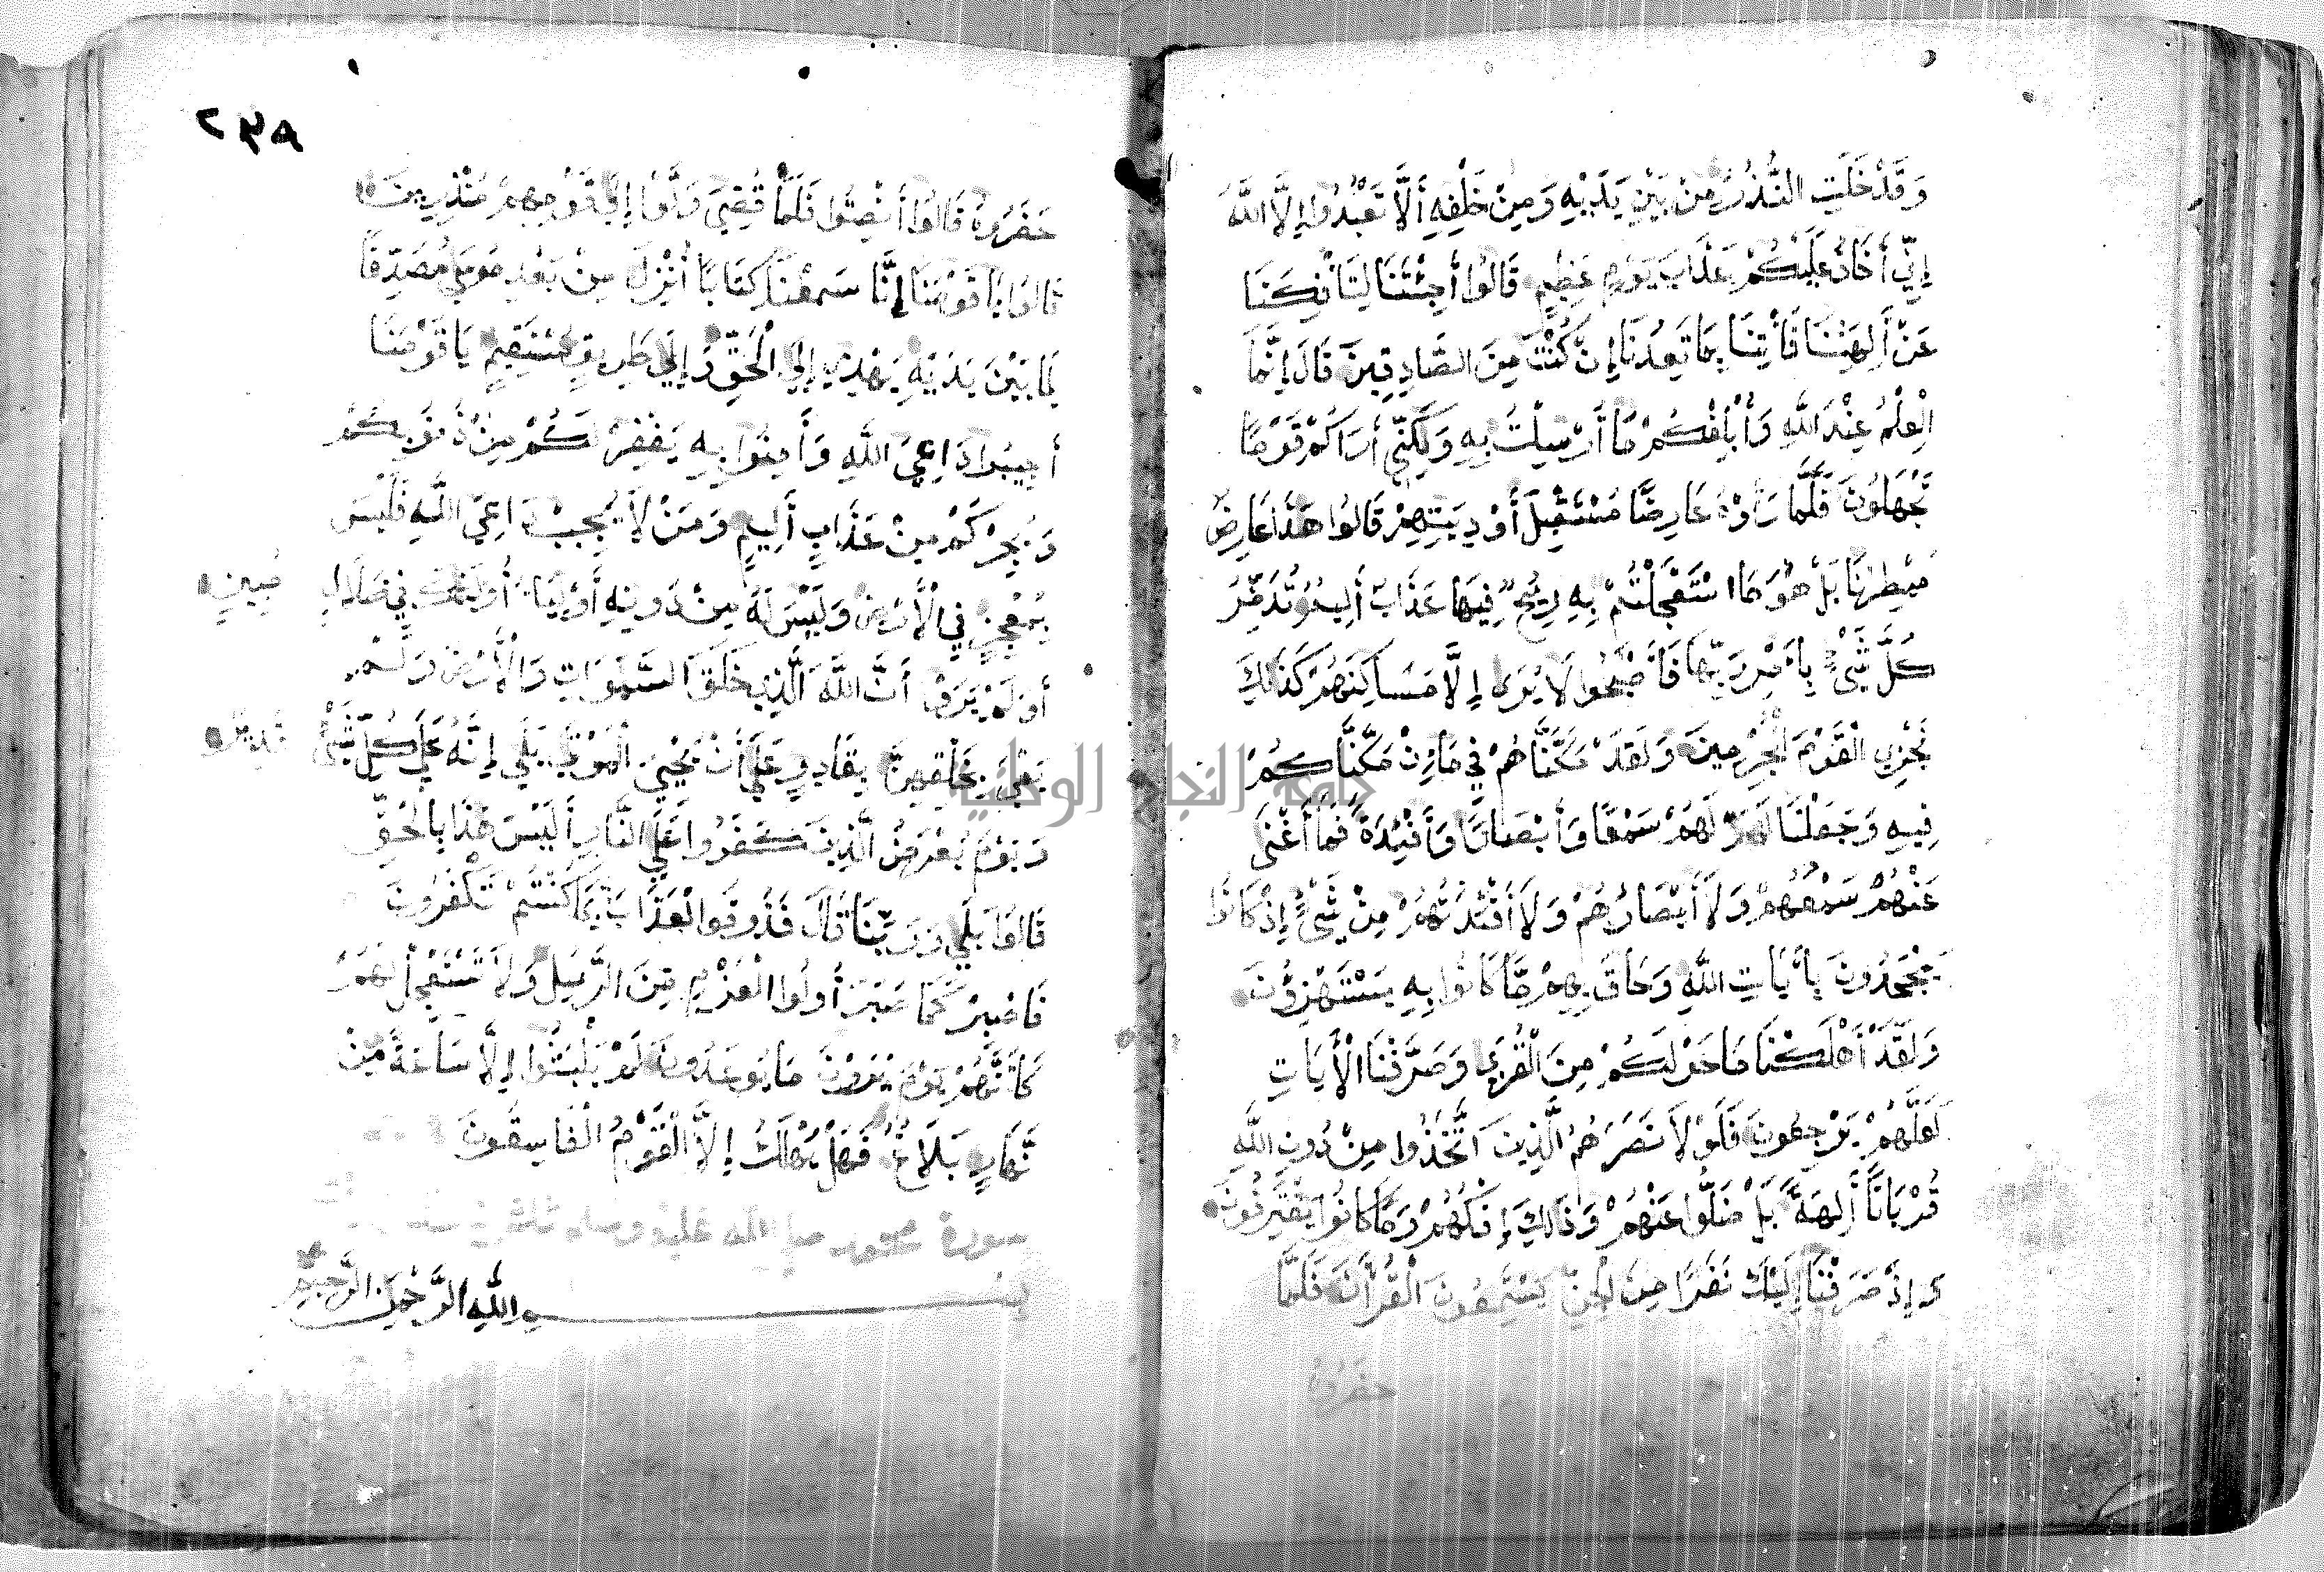 وَقَدْ خَلَتِ النُّذُرُ مِنْ بَيْنِ يَدَيْهِ وَمِنْ خَلْفِهِ أَلَّا تَعْبُدُوا إِلَّا اللَّهَ
إِنِّي أَخَافُ عَلَيْكُمْ عَذَابَ يَوْمٍ عَظِيمٍ قَالُوا أَجِئْتَنَا لِتَأْفِكَنَا
عَنْ أَلِهَتِنَا فَأْتِنَا بِمَا تَعِدُنَا إِنْ كُنْتَ مِنَ الصَّادِقِينَ قَالَ إِنَّمَا
الْعِلْمُ عِنْدَ اللَّهِ وَأُبَلِّغُكُمْ مَا أُرْسِلْتُ بِهِ وَلَكِنِّي أَرَاكُمْ قَوْمًا
تَجْهَلُونَ فَلَمَّا رَأَوْهُ عَارِضًا مُسْتَقْبِلَ أَوْدِيَتِهِمْ قَالُوا هَذَا عَارِضٌ
مُمْطِرُنَا بَلْ هُوَ مَا اسْتَعْجَلْتُمْ بِهِ رِيحٌ فِيهَا عَذَابٌ أَلِيمٌ تُدَمِّرُ
كُلَّ شَيْءٍ بِأَمْرِ رَبِّهَا فَأَصْبَحُوا لَا يُرَى إِلَّا مَسَاكِنُهُمْ كَذَلِكَ
نَجْزِي الْقَوْمَ الْمُجْرِمِينَ وَلَقَدْ مَكَّنَّاهُمْ فِي مَا إِنْ مَكَّنَّاكُمْ
فِيهِ وَجَعَلْنَا لَهُمْ سَمْعًا وَأَبْصَارًا وَأَفْئِدَةً فَمَا أَغْنَى
عَنْهُمْ سَمْعُهُمْ وَلَا أَبْصَارُهُمْ وَلَا أَفْئِدَتُهُمْ مِنْ شَيْءٍ إِذْ كَانُوا
يَجْحَدُونَ بِأَيَاتِ اللَّهِ وَحَاقَ بِهِمْ مَا كَانُوا بِهِ يَسْتَهْزِؤُنَ
وَلَقَدْ أَهْلَكْنَا مَا حَوْلَكُمْ مِنَ الْقُرَى وَصَرَّفْنَا الْأَيَاتِ
لَعَلَّهُمْ يَرْجِعُونَ فَلَوْلَا نَصَرَهُمُ الَّذِينَ اتَّخَذُوا مِنْ دُونِ اللَّهِ
قُرْبَانًا أَلِهَةً بَلْ ضَلُّوا عَنْهُمْ وَذَلِكَ إِفْكُهُمْ وَمَا كَانُوا يَفْتَرُونَ
وَإِذْ صَرَفْنَا إِلَيْكَ نَفَرًا مِنَ الْجِنِّ يَسْتَمِعُونَ الْقُرْأَنَ فَلَمَّا
حَضَرُوهُ
٢٣٨
حَضَرُوهُ قَالُوا أَنْصِتُوا فَلَمَّا قُضِيَ وَلَّوْا إِلَى قَوْمِهِمْ مُنْذِرِينَ
قَالُوا يَا قَوْمَنَا إِنَّا سَمِعْنَا كِتَابًا أُنْزِلَ مِنْ بَعْدِ مُوسَى مُصَدِّقًا
لِمَا بَيْنَ يَدَيْهِ يَهْدِي إِلَى الْحَقِّ وَإِلَى طَرِيقٍ مُسْتَقِيمٍ يَا قَوْمَنَا
أَجِيبُوا دَاعِيَ اللَّهِ وَأَمِنُوا بِهِ يَغْفِرْ لَكُمْ مِنْ ذُنُوبِكُمْ
وَيُجِرْكُمْ مِنْ عَذَابٍ أَلِيمٍ وَمَنْ لَا يُجِبْ دَاعِيَ اللَّهِ فَلَيْسَ
بِمُعْجِزٍ فِي الْأَرْضِ وَلَيْسَ لَهُ مِنْ دُونِهِ أَوْلِيَاءُ أُولَئِكَ فِي ضَلَالٍ مُبِينٍ
أَوَلَمْ يَرَوْا أَنَّ اللَّهَ الَّذِي خَلَقَ السَّمَوَاتِ وَالْأَرْضَ وَلَمْ
يَعْيَ بِخَلْقِهِنَّ بِقَادِرٍ عَلَى أَنْ يُحْيِيَ الْمَوْتَى بَلَى إِنَّهُ عَلَى كُلِّ شَيْءٍ قَدِيرٌ
وَيَوْمَ يُعْرَضُ الَّذِينَ كَفَرُوا عَلَى النَّارِ أَلَيْسَ هَذَا بِالْحَقِّ
قَالُوا بَلَى وَرَبِّنَا قَالَ فَذُوقُوا الْعَذَابَ بِمَا كُنْتُمْ تَكْفُرُونَ
فَاصْبِرْ كَمَا صَبَرَ أُولُوا الْعَزْمِ مِنَ الرُّسُلِ وَلَا تَسْتَعْجِلْ لَهُمْ
كَأَنَّهُمْ يَوْمَ يَرَوْنَ مَا يُوعَدُونَ لَمْ يَلْبَثُوا إِلَّا سَاعَةً مِنْ
نَهَارٍ بَلَاغٌ فَهَلْ يُهْلَكُ إِلَّا الْقَوْمُ الْفَاسِقُونَ
سورة محمد صلى الله عليه وسلم
بسم اللَّهِ الرَّحْمَنِ الرَّحِيمِ
جامعة النجاح الوطنية